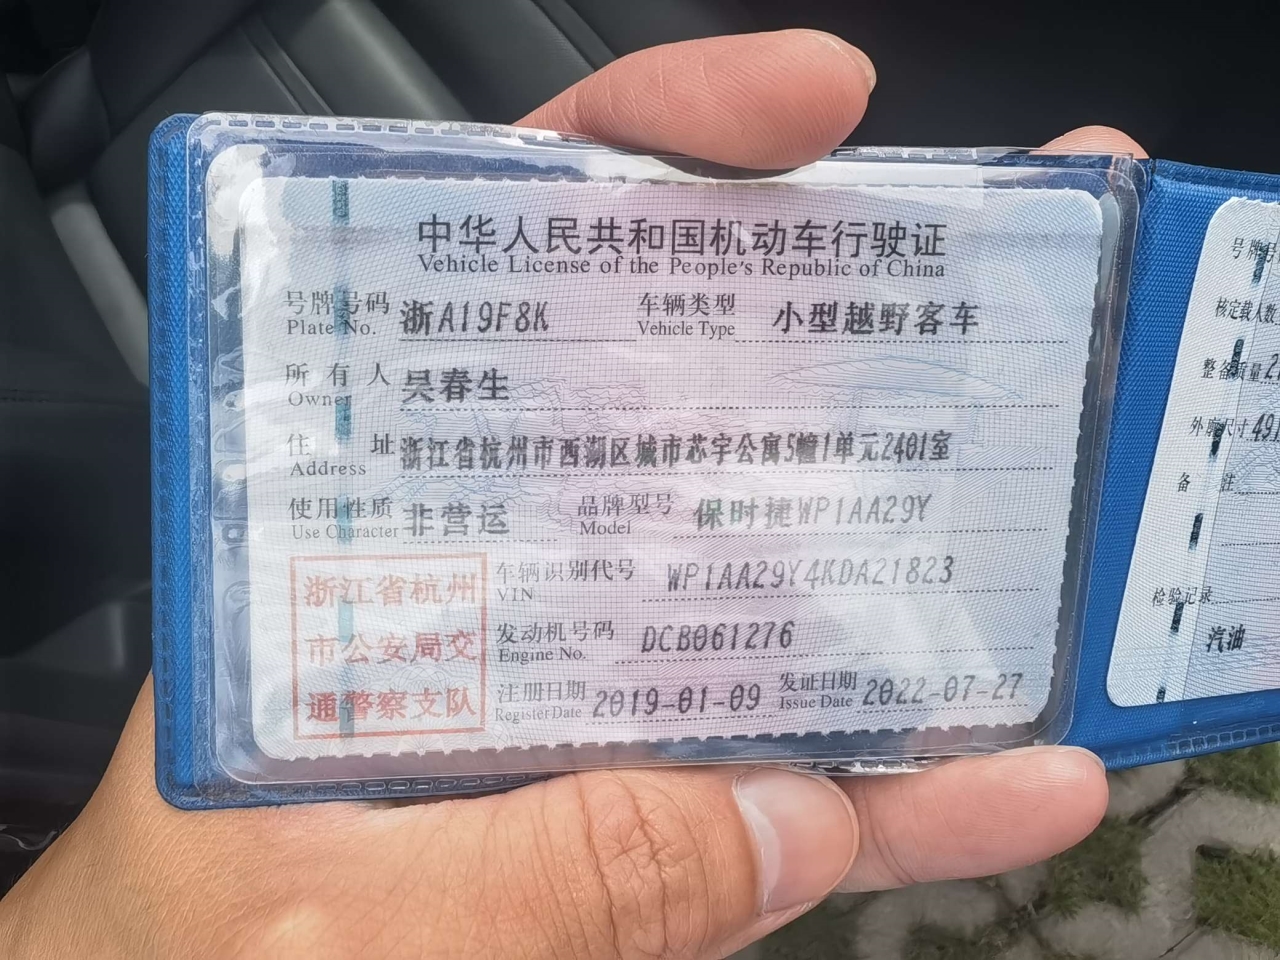 中华人民共和国机动车行驶证
Vehicle License of the People's Republic of China
号牌号码 浙A19F8K 车辆类型 小型越野客车
Plate No. Vehicle Type
所有人 吴春生
Owner
住址 浙江省杭州市西湖区城市芯宇公寓5幢1单元2401室
Address
使用性质 非营运 品牌型号 保时捷WP1AA29Y
Use Character Model
浙江省杭州
市公安局交
通警察支队
车辆识别代号 WP1AA29Y4KDA21823
VIN
发动机号码 DCB061276
Engine No.
注册日期 2019-01-09 发证日期 2022-07-27
Register Date Issue Date
号牌号
核定载人数
整备质量
外廓尺寸 491
备注
检验记录
汽油